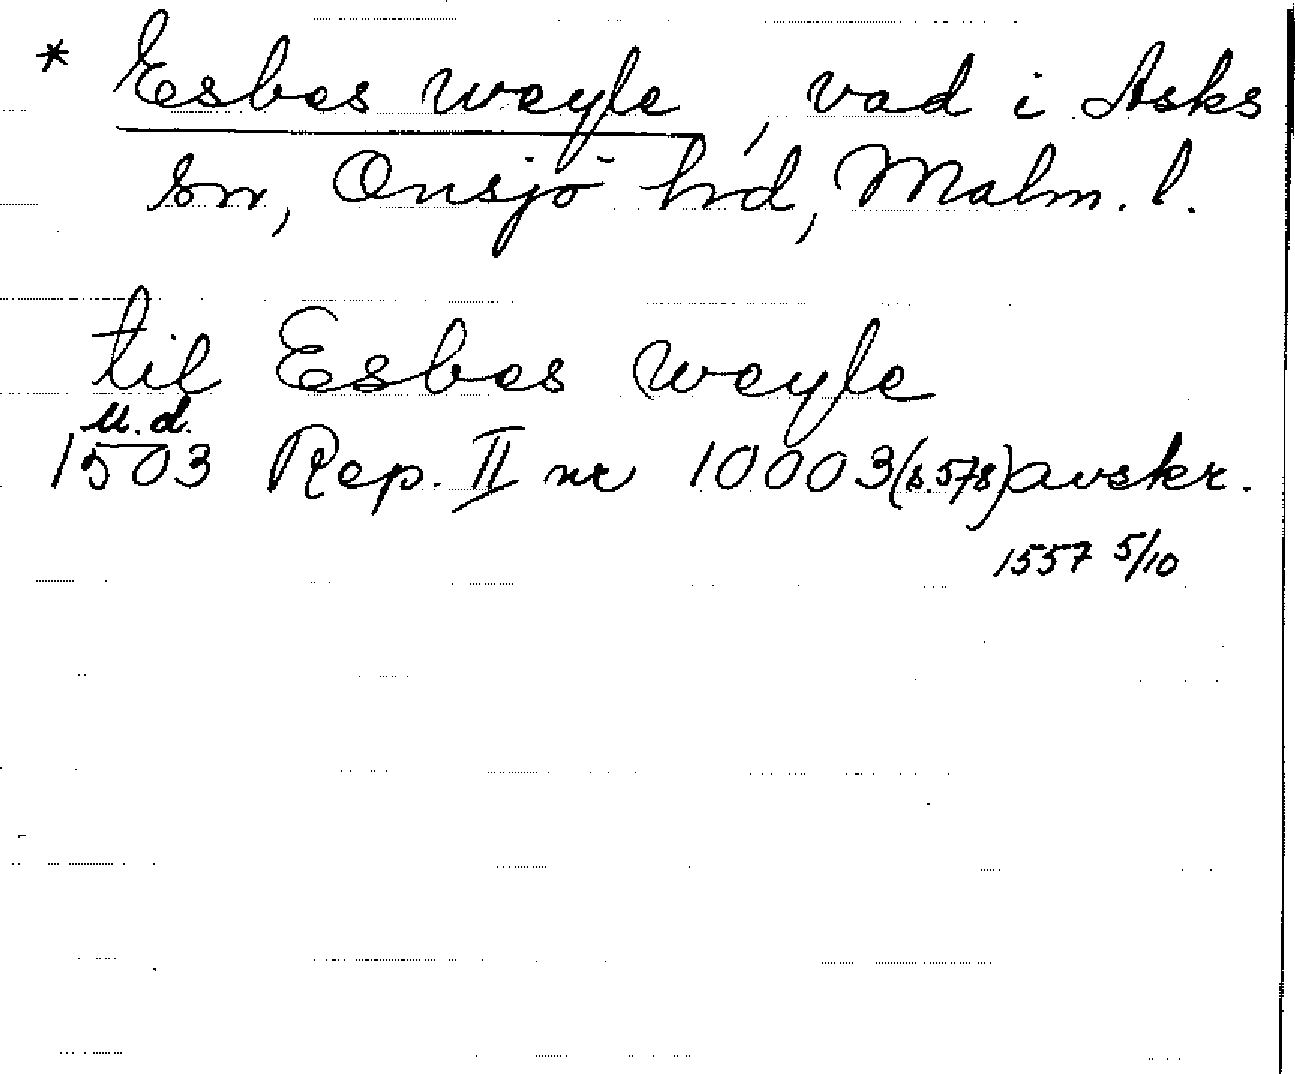 * Esbes weyle, vad i Asks
sn, Onsjö hd, Malm. l.
til Esbes weyle
u. d.
1503 Rep. II nr 10003 (s. 578) avskr.
1557 5/10